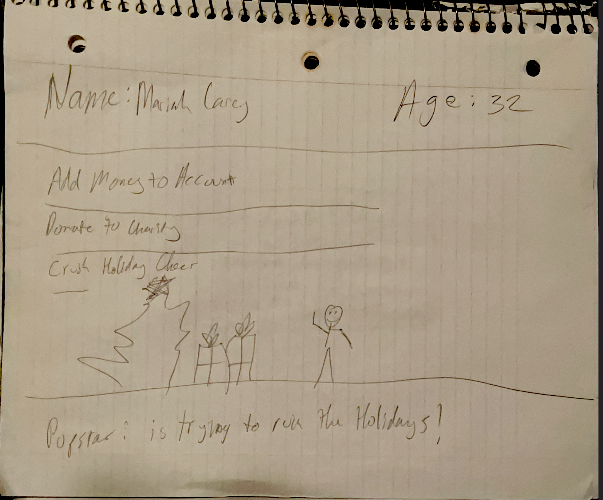 Name: Mariah Carey Age: 32
Add Money to Account
Donate to Charity
Crush Holiday Cheer
Popstar: is trying to ruin the Holidays!